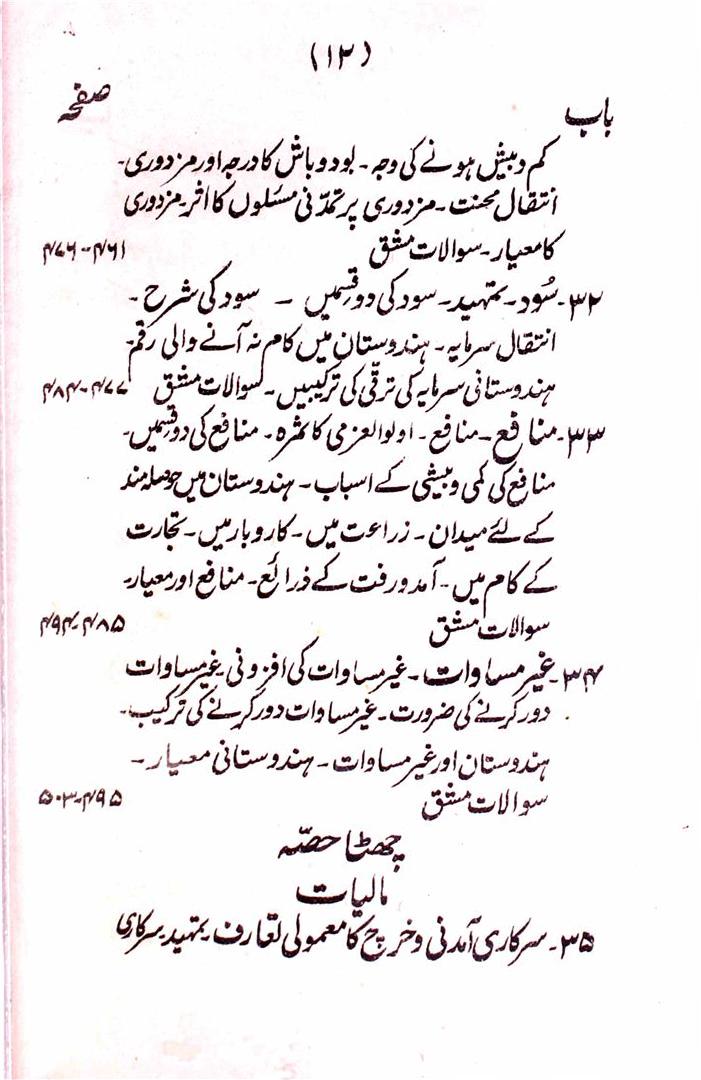 (۱۲)
باب
صفحہ
کم و بیش ہونے کی وجہ۔ بود و باش کا درجہ اور مزدوری۔
انتقال محنت۔ مزدوری پر تمدّنی مسئلوں کا اثر۔ مزدوری
کا معیار۔ سوالات مشق ۴۶۱-۴۷۶
۳۲۔ سُود۔ تمہید۔ سود کی دو قسمیں ۔ سود کی شرح ۔
انتقال سرمایہ۔ ہندوستان میں کام نہ آنے والی رقم۔
ہندوستانی سرمایہ کی ترقّی کی ترکیبیں۔ سوالات مشق ۴۷۷-۴۸۴
۳۳۔ منافع۔ منافع۔ اولوالعزمی کا ثمرہ۔ منافع کی دو قسمیں۔
منافع کی کمی و بیشی کے اسباب۔ ہندوستان میں حوصلہ مند
کے لئے میدان۔ زراعت میں۔ کاروبار میں۔ تجارت
کے کام میں۔ آمدورفت کے ذرائع۔ منافع اور معیار۔
سوالات مشق ۴۸۵-۴۹۴
۳۴۔ غیر مساوات۔ غیر مساوات کی افزونی۔ غیر مساوات
دور کرنے کی ضرورت۔ غیر مساوات دور کرنے کی ترکیب۔
ہندوستان اور غیر مساوات۔ ہندوستانی معیار۔
سوالات مشق ۴۹۵-۵۰۳
چھٹا حصّہ
مالیات
۳۵۔ سرکاری آمدنی و خرچ کا معمولی تعارف۔ تمہید۔ سرکاری